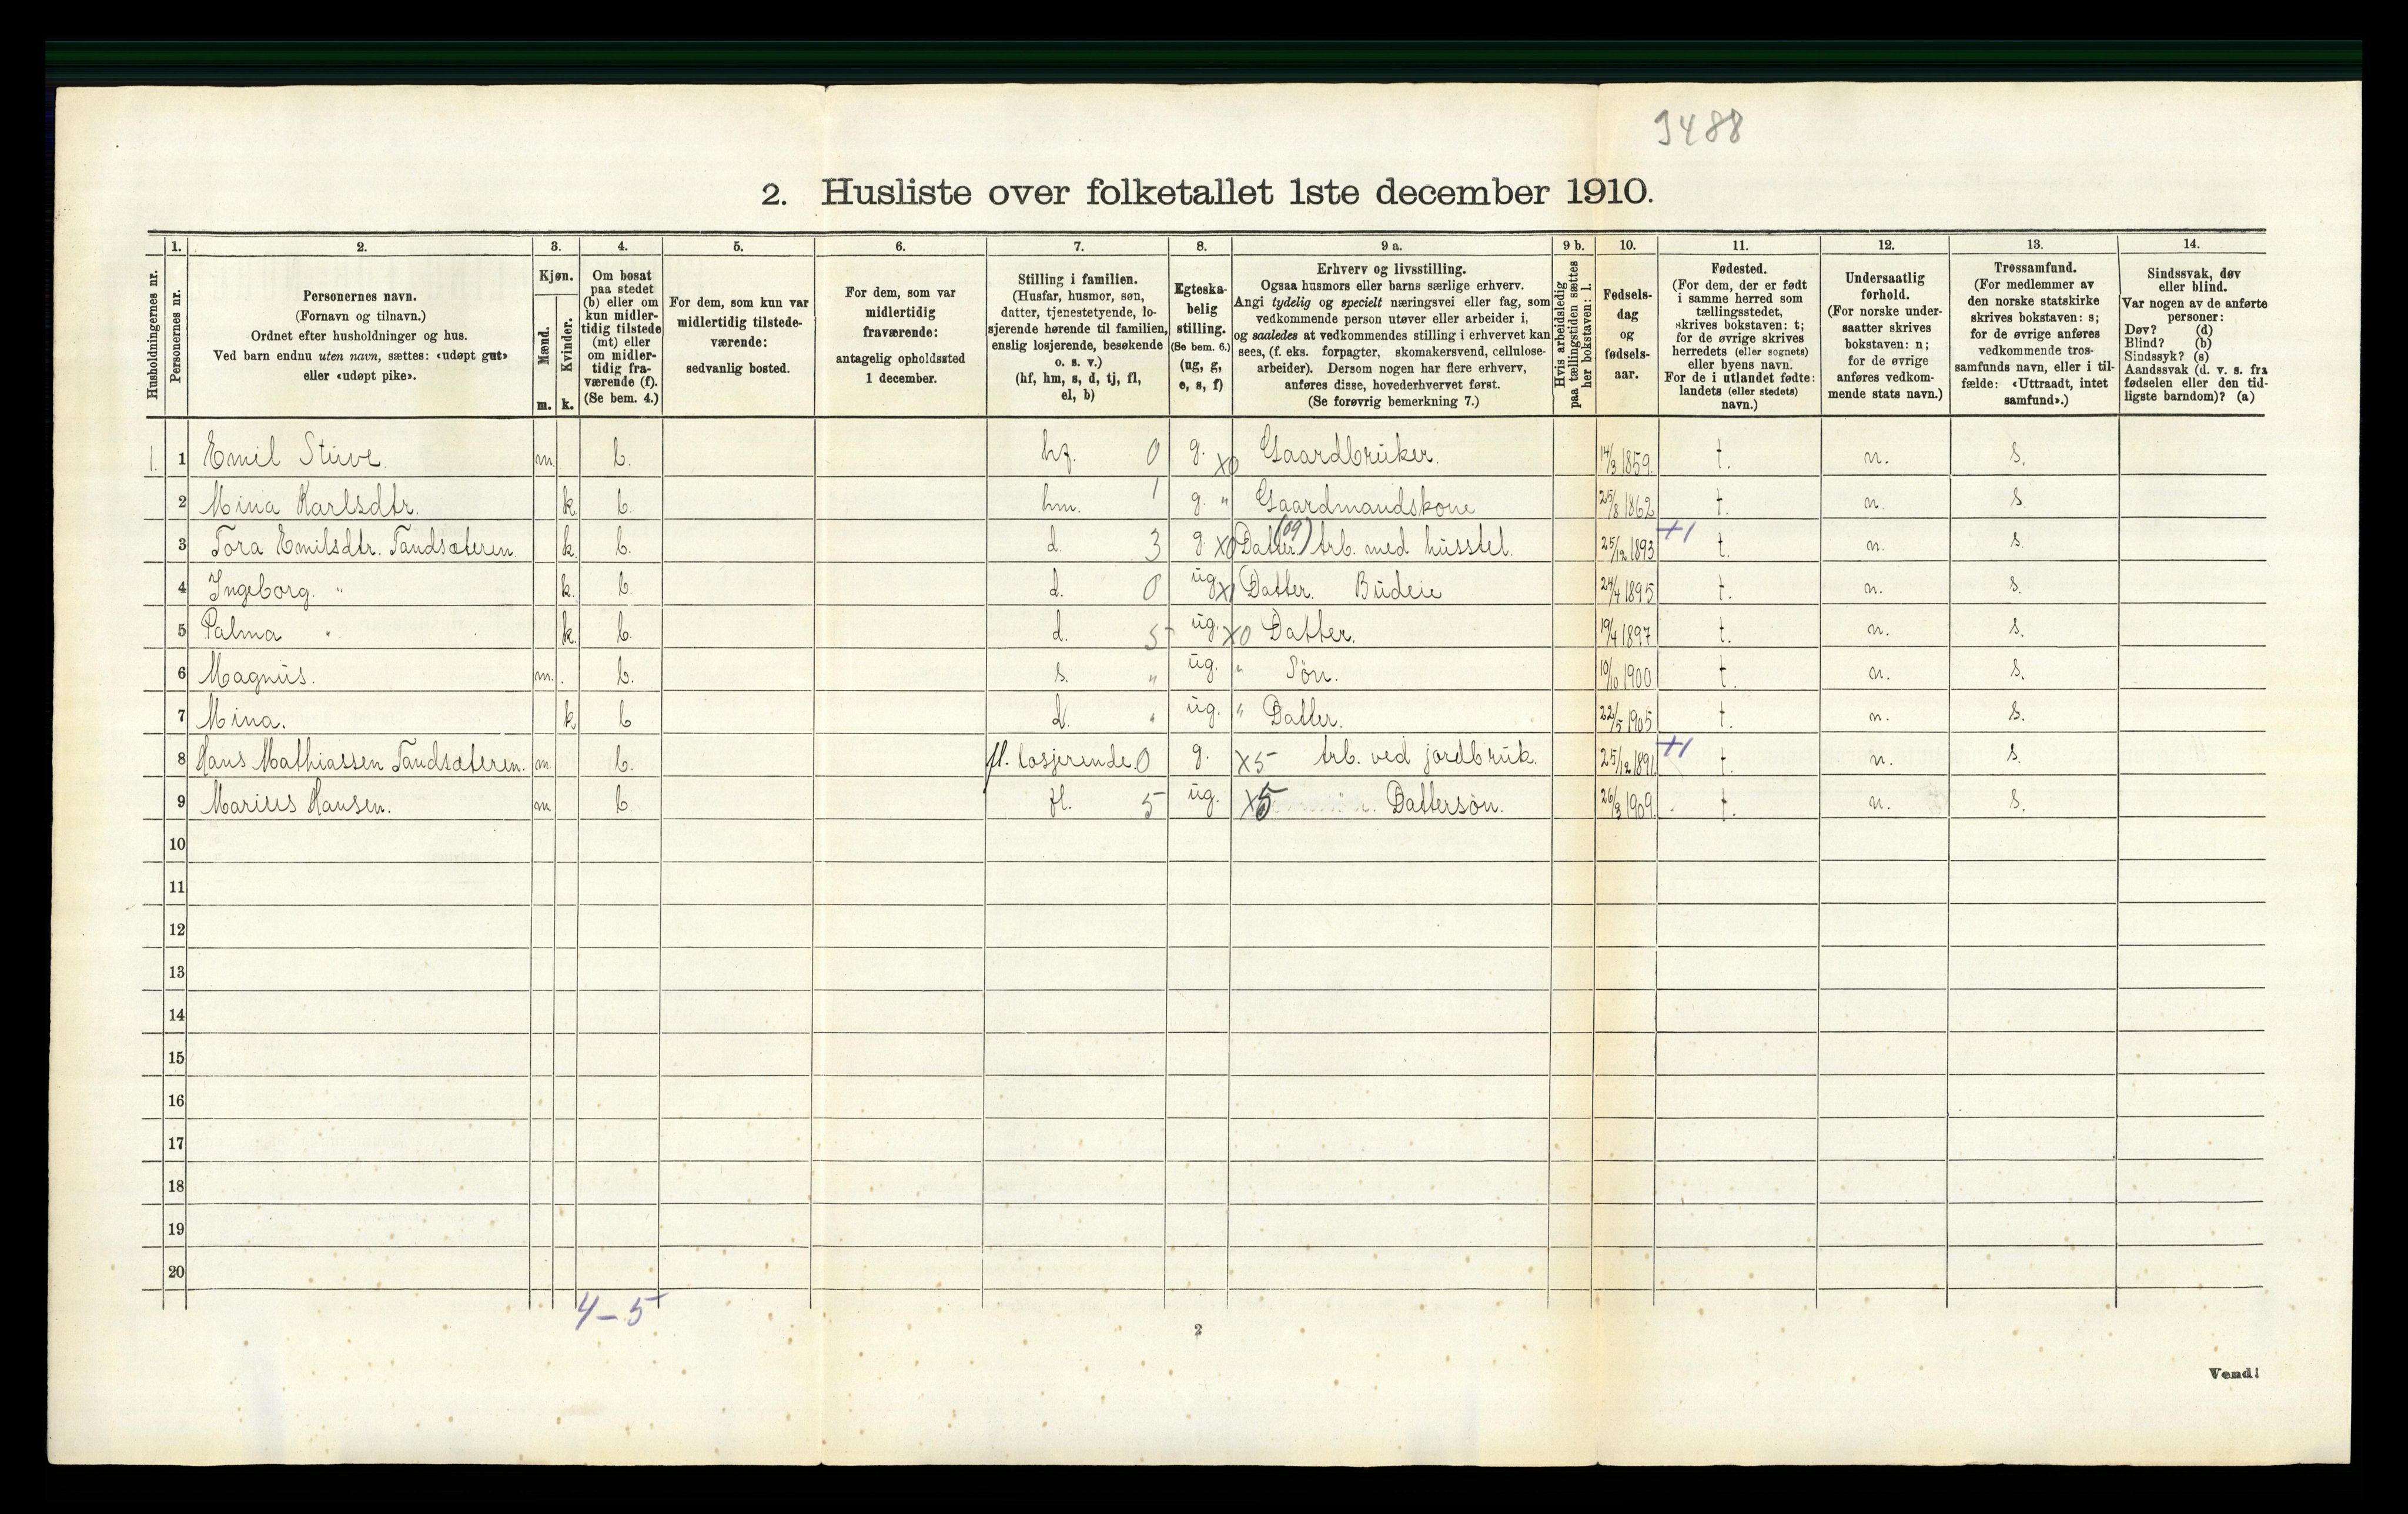 3488
2. Husliste over folketallet 1ste december 1910.
Husholdningernes nr.
1.
Personernes nr.
2.
Personernes navn.
(Fornavn og tilnavn.)
Ordnet efter husholdninger og hus.
Ved barn endnu uten navn, sættes: «udøpt gut»
eller «udøpt pike».
3.
Kjøn.
Mænd.
Kvinder.
m. k.
4.
Om bosat
paa stedet
(b) eller om
kun midler-
tidig tilstede
(mt) eller
om midler-
tidig fra-
værende (f).
(Se bem. 4.)
5.
For dem, som kun var
midlertidig tilstede-
værende:
sedvanlig bosted.
6.
For dem, som var
midlertidig
fraværende:
antagelig opholdssted
1 december.
7.
Stilling i familien.
(Husfar, husmor, søn,
datter, tjenestetyende, lo-
sjerende hørende til familien,
enslig losjerende, besøkende
o. s. v.)
(hf, hm, s, d, tj, fl,
el, b)
8.
Egteska-
belig
stilling.
(Se bem. 6.)
(ug, g,
e, s, f)
9 a.
Erhverv og livsstilling.
Ogsaa husmors eller barns særlige erhverv.
Angi tydelig og specielt næringsvei eller fag, som
vedkommende person utøver eller arbeider i,
og saaledes at vedkommendes stilling i erhvervet kan
sees, (f. eks. forpagter, skomakersvend, cellulose-
arbeider). Dersom nogen har flere erhverv,
anføres disse, hovederhvervet først.
(Se forøvrig bemerkning 7.)
9 b.
Hvis arbeidsledig
paa tællingstiden sættes
her bokstaven: l.
10.
Fødsels-
dag
og
fødsels-
aar.
11.
Fødested.
(For dem, der er født
i samme herred som
tællingsstedet,
skrives bokstaven: t;
for de øvrige skrives
herredets (eller sognets)
eller byens navn.
For de i utlandet fødte:
landets (eller stedets)
navn.)
12.
Undersaatlig
forhold.
(For norske under-
saatter skrives
bokstaven: n;
for de øvrige
anføres vedkom-
mende stats navn.)
13.
Trossamfund.
(For medlemmer av
den norske statskirke
skrives bokstaven: s;
for de øvrige anføres
vedkommende tros-
samfunds navn, eller i til-
fælde: «Uttraadt, intet
samfund».)
14.
Sindssvak, døv
eller blind.
Var nogen av de anførte
personer:
Døv? (d)
Blind? (b)
Sindssyk? (s)
Aandssvak (d. v. s. fra
fødselen eller den tid-
ligste barndom)? (a)
1. 1 Emil Stuve m. b. hf. 0 g. X0 Gaardbruker. 14/3 1859. t. n. s.
2 Mina Karlsdtr. k. b. hm. 1 g. " Gaardmandskone 25/8 1862 t. n. s.
3 Tora Emilsdtr. Tandsæteren. k. b. d. 3 g. X0 Datter. (09) Arb. med husstel. 25/12 1893 +1 t. n. s.
4 Ingeborg. " k. b. d. 0 ug X1 Datter. Budeie 24/4 1895 t. n. s.
5 Palma " k. b. d. 5 ug. X0 Datter. 19/4 1897 t. n. s.
6 Magnus. m. b. s. " ug. " Søn. 10/10 1900 t. n. s.
7 Mina. k b d. " ug. " Datter. 22/5 1905 t. n. s.
8 Hans Mathiassen Tandsæteren. m. b. fl. losjerende. 0 g. X5 Arb. ved jordbruk. 25/12 1891 +1 t. n. s.
9 Marius Hansen. m b. fl. 5 ug. X5 Dattersøn. 26/3 1909. t. n. s.
10
11
12
13
14
15
16
17
18
19
20
4-5
2
Vend!